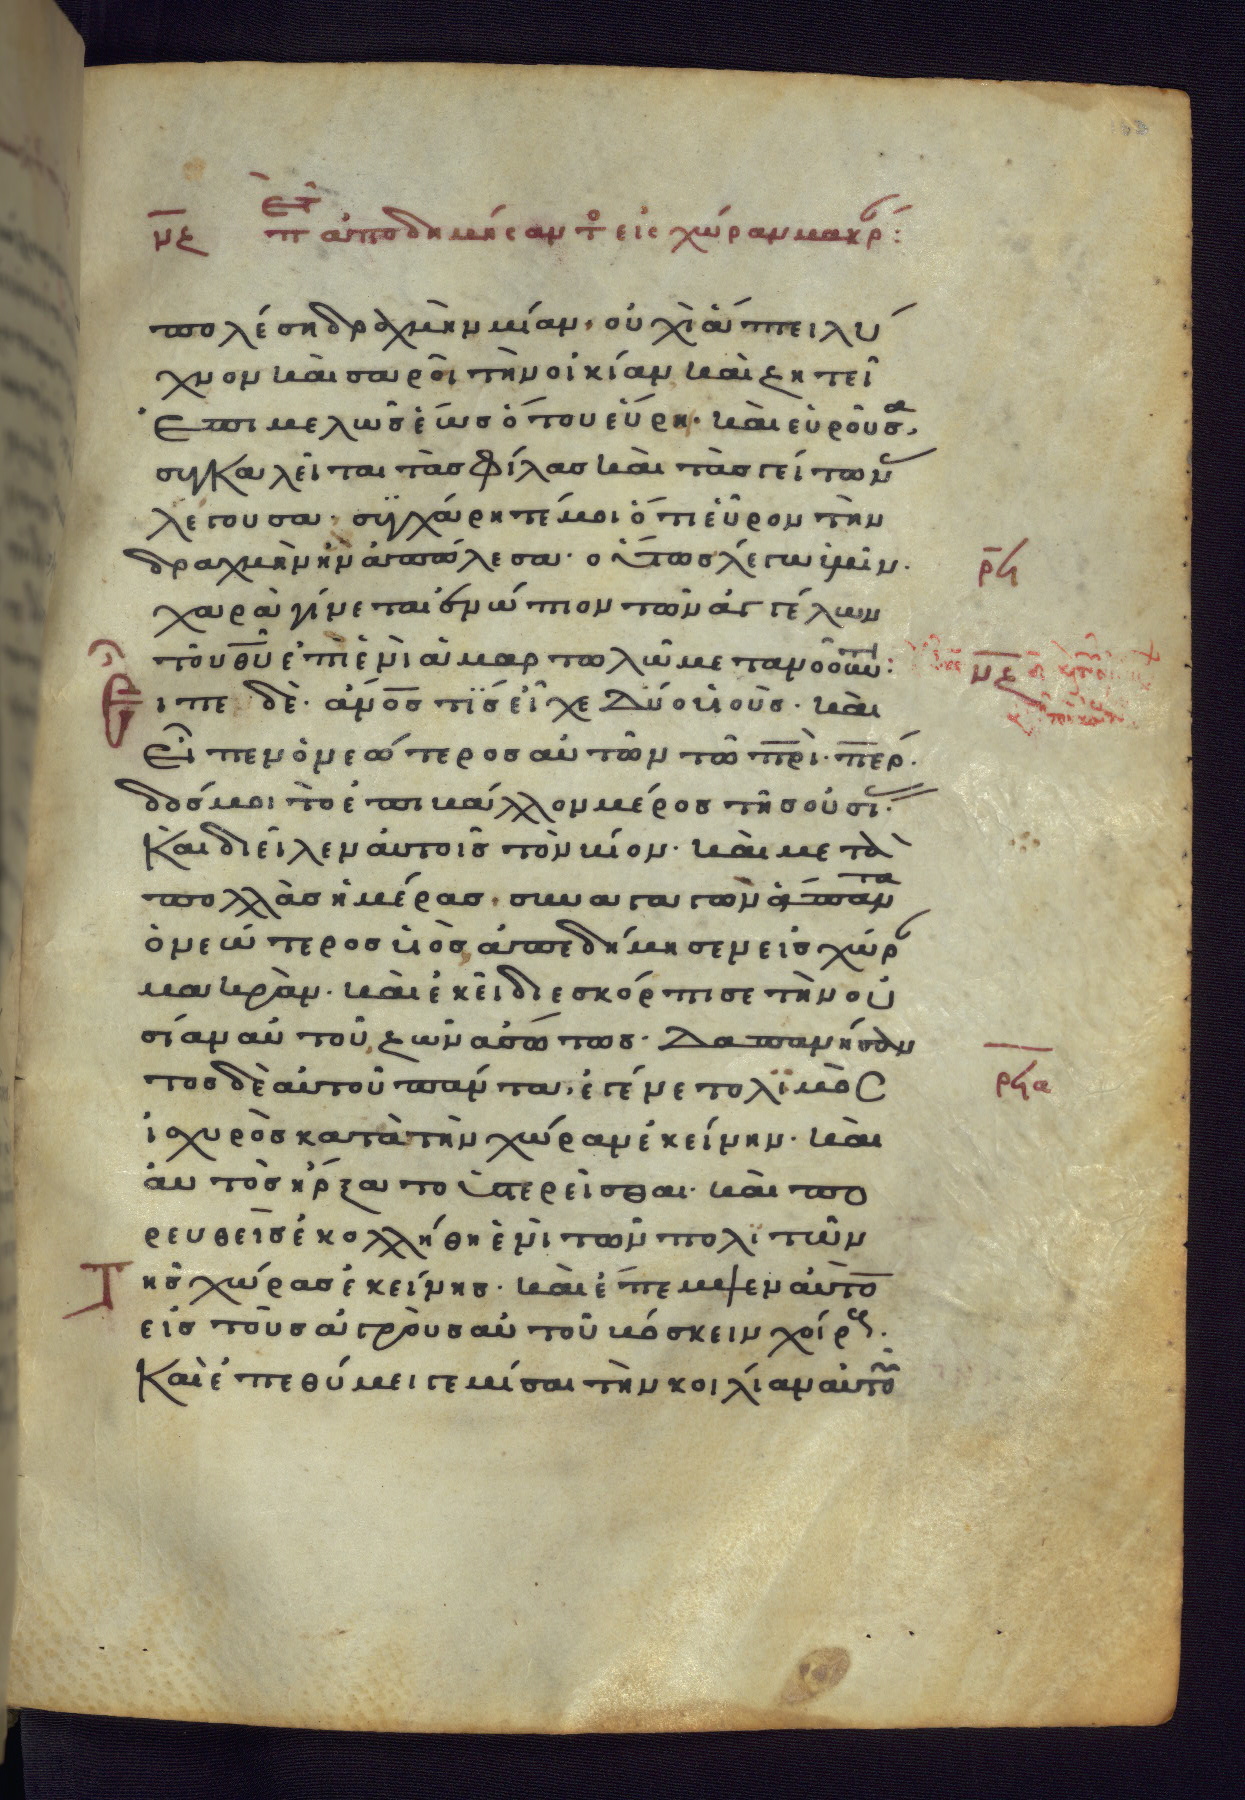 μζ περὶ ἀποδημήσαντο εἰς χώραν μακρ:
πολέση δραχμὴν μίαν· οὐχὶ ἅπτει λύ
χνον καὶ σαροῖ τὴν οἰκίαν καὶ ζητεῖ
ἐπιμελῶς ἕως ὅτου εὕρη· καὶ εὑροῦσα,
συγκαλεῖται τὰς φίλας καὶ τὰς γείτων
λέγουσα· συγχάρητέ μοι ὅτι εὗρον τὴν
δραχμὴν ἣν ἀπώλεσα· οὕτως λέγω ὑμῖν·
ρϟ
χαρὰ γίνεται ἐνώπιον τῶν ἀγγέλων
τοῦ θυ ἐπὶ ἑνὶ ἁμαρτωλῶ μετανοοῦντι:
μζ
Εἶπε δὲ· ἄνος τίς εἶχε δύο υἱοὺς· καὶ
εἶπεν ὁ νεώτερος αὐτῶν τῶ πρι· περ·
δός μοι τὸ ἐπιβάλλον μέρος τῆς οὐσί·
Καὶ διεῖλεν αὐτοῖς τὸν βίον· καὶ μετὰ
πολλὰς ἡμέρας· συναγαγὼν ἅπαντα
ὁ νεώτερος υἱὸς ἀπεδήμησεν εἰς χώρ
μακρὰν· καὶ ἐκεῖ διεσκόρπισε τὴν οὐ
σίαν αὐτοῦ, ζῶν ἀσώτως· Δαπανήσαν
τος δὲ αὐτοῦ πάντα, ἐγένετο λιμὸς
ρϟα
ἰσχυρὸς κατὰ τὴν χώραν ἐκείνην· καὶ
αὐτὸς ἤρξατο ὑστερεῖσθαι· καὶ πο
ρευθεὶς ἐκολλήθη ἑνὶ τῶν πολιτῶν
Τῆς χώρας ἐκείνης· καὶ ἔπεμψεν αὐτὸ
εἰς τοὺς ἀγροὺς αὐτοῦ βόσκειν χοίρους·
Καὶ ἐπεθύμει γεμίσαι τὴν κοιλίαν αὐτοῦ